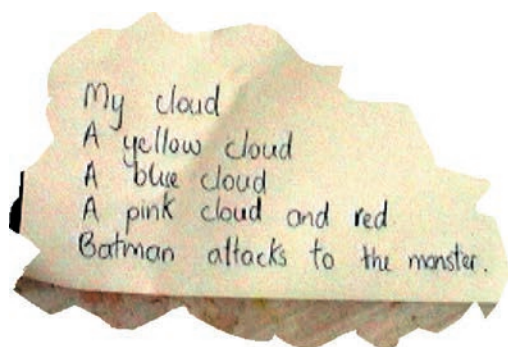 My cloud
A yellow cloud
A blue cloud
A pink cloud and red.
Batman attacks to the monster.